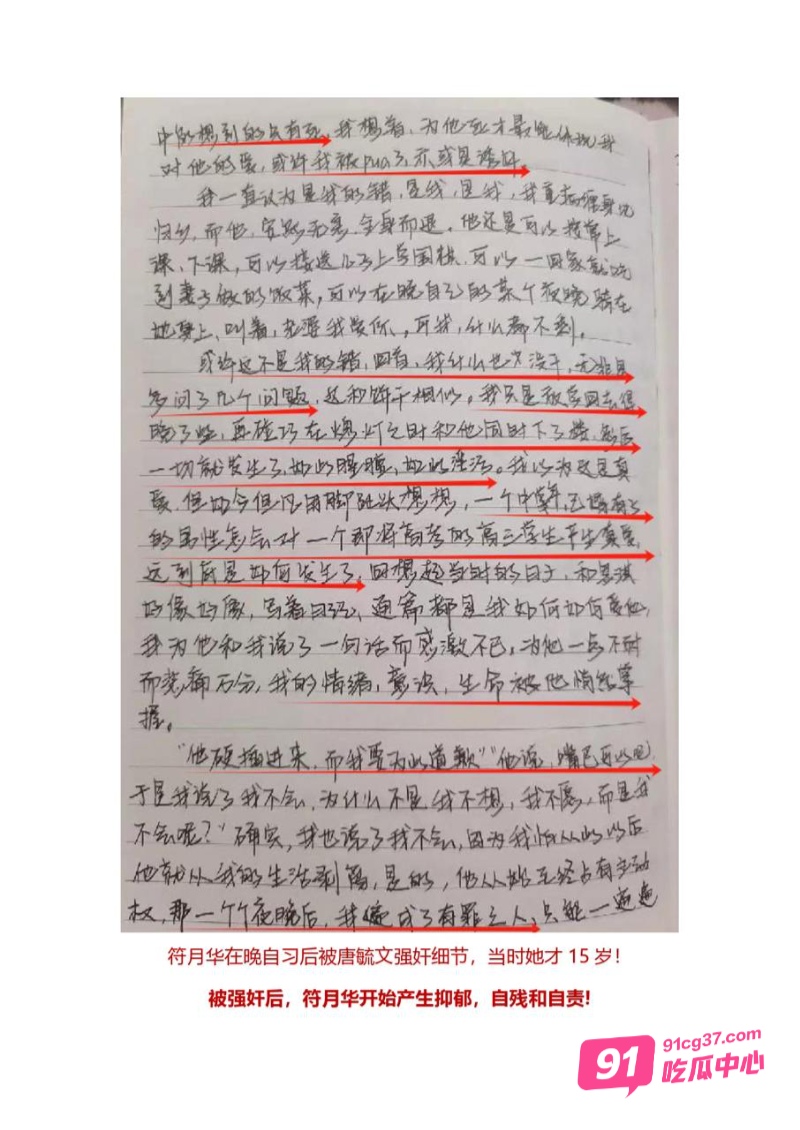 中能想到的只有死。我想着,为他死才最能体现我
对他的爱,或许我被pua了,亦或是活该。
我一直认为是我的错,是我,是我,
归乡,而他,安然无恙,全身而退。他还是可以接常上
课、下课,可以接送儿子上学围棋,可以一回家就吃
到妻子做的饭菜,可以在晚自习的某个夜晚骑在
她身上,叫着,老婆我爱你,可我,什么都不剩。
或许这不是我的错,回首,我什么也没干,无非是
多问了几个问题,这和饼干相似。我只是放学回去得
晚了些,再碰巧在熄灯之时和他同时下了楼,然后
一切就发生了,如此腥膻,如此淫活。我以为这是真
爱,但如今但凡用脚趾头想想,一个中年,已婚有子
的男性怎会对一个即将高考的高三学生产生真爱,
这到底是如何发生了,回想起当时的日子,和思琪
好像好像,写着日记,通篇都是我如何如何爱他,
我为他和我说了一句话而感激不已,为他一点不耐
而悲痛万分,我的情绪,意识,生命被他悄然掌
握。
“他硬插进来,而我要为此道歉”“他说,嘴巴可以吧
于是我说了我不会,为什么不是我不想,我不愿,而是我
不会呢?”确实,我也说了我不会,因为我怕从此以后
他就从我的生活剥离,是的,他从始至终占有主动
权,那一个个夜晚后,我便成了有罪之人,只能一遍遍
符月华在晚自习后被唐毓文强奸细节,当时她才 15 岁!
被强奸后,符月华开始产生抑郁,自残和自责!
91
91cg37.com
吃瓜中心